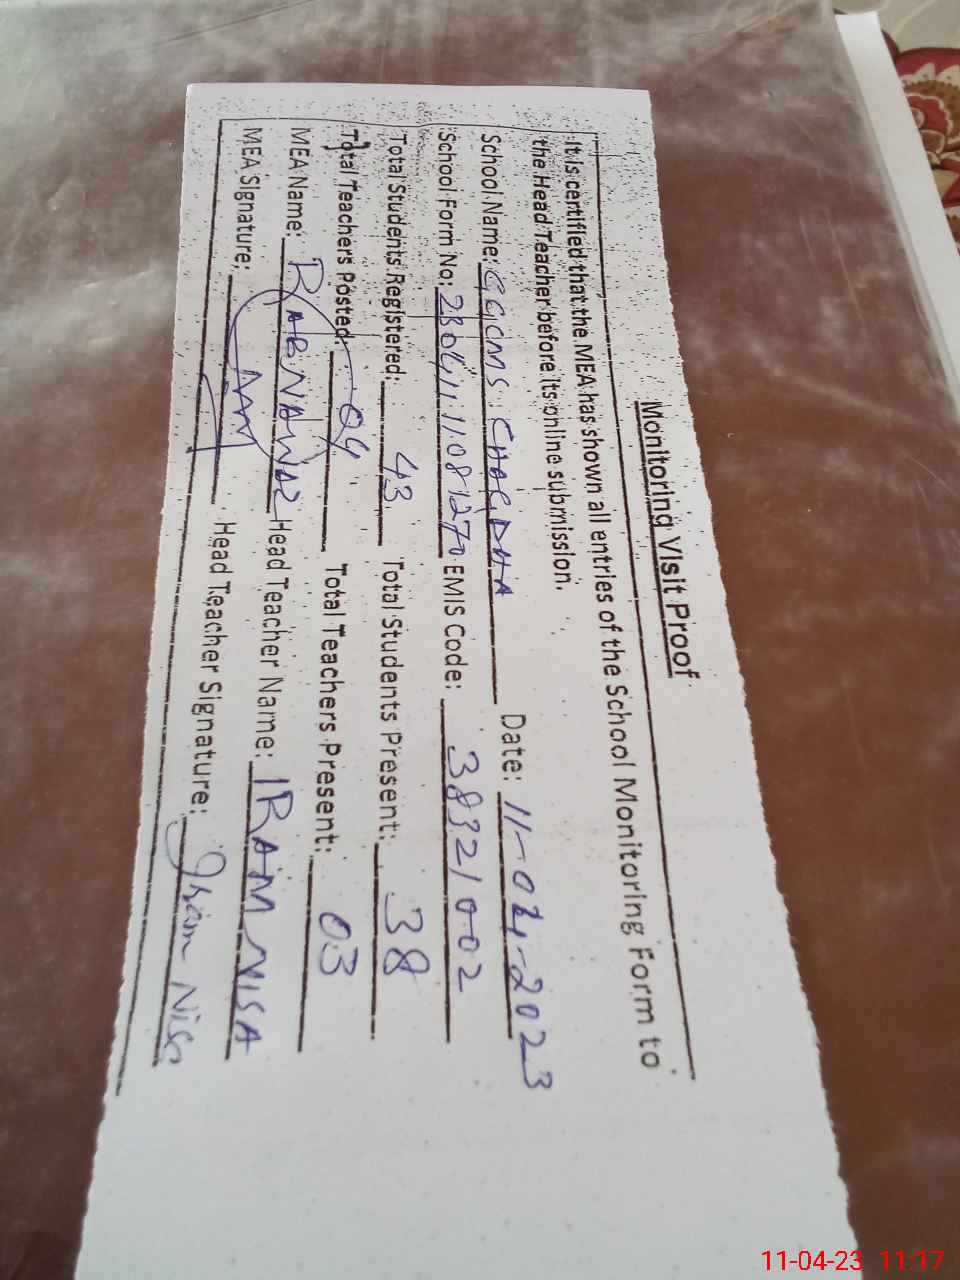 Monitoring Visit Proof
It is certified that the MEA has shown all entries of the School Monitoring Form to
the Head Teacher before its online submission.
School Name: GGCMS CHACDHA Date: 11-04-2023
School Form No: 230411081270 EMIS Code: 38321002
Total Students Registered: 43 Total Students Present: 38
Total Teachers Posted: 04 Total Teachers Present: 03
MEA Name: RAB NAWAZ Head Teacher Name: IRAM NISA
MEA Signature: Head Teacher Signature: Iram Nisa
11-04-23 11:17